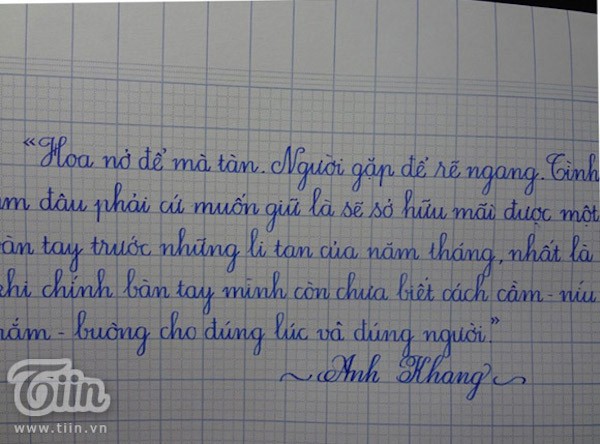 “Hoa nở để mà tàn. Người gặp để rẽ ngang. Tình
đâu phải cứ muốn giữ là sẽ sở hữu mãi được một
tay trước những li tan của năm tháng, nhất là
khi chính bàn tay mình còn chưa biết cách cầm - níu
nắm - buông cho đúng lúc và đúng người.”
~ Anh Khang ~
Tiin
www.tiin.vn